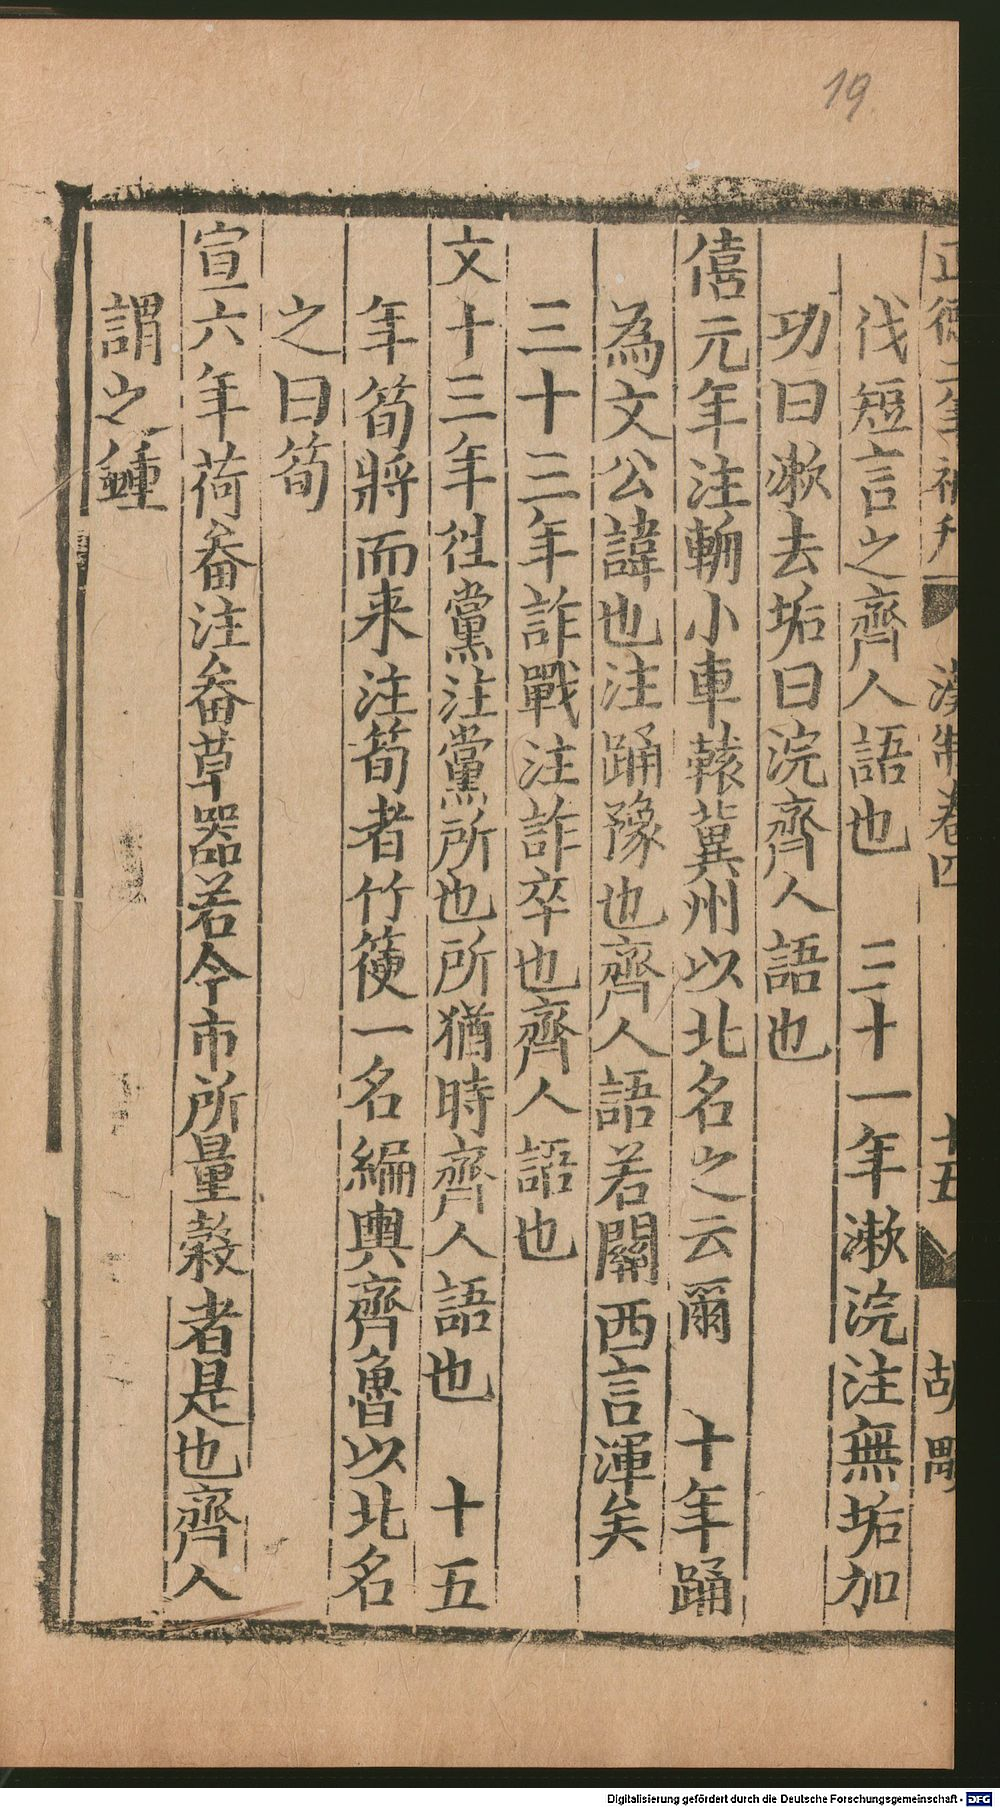 19
正德二年補刊 漢制卷四 十五 胡剛
伐短言之齊人語也 三十一年漱浣注無垢加
功曰漱去垢曰浣齊人語也
僖元年注輈小車轅冀州以北名之云爾 十年踊
為文公諱也注踊豫也齊人語若關西言渾矣
三十三年詐戰注詐卒也齊人語也
文十三年徃黨注黨所也所猶時齊人語也 十五
年筍將而来注筍者竹箯一名編輿齊魯以北名
之曰筍
宣六年荷畚注畚草器若今市所量穀者是也齊人
謂之鍾
Digitalisierung gefördert durch die Deutsche Forschungsgemeinschaft - DFG